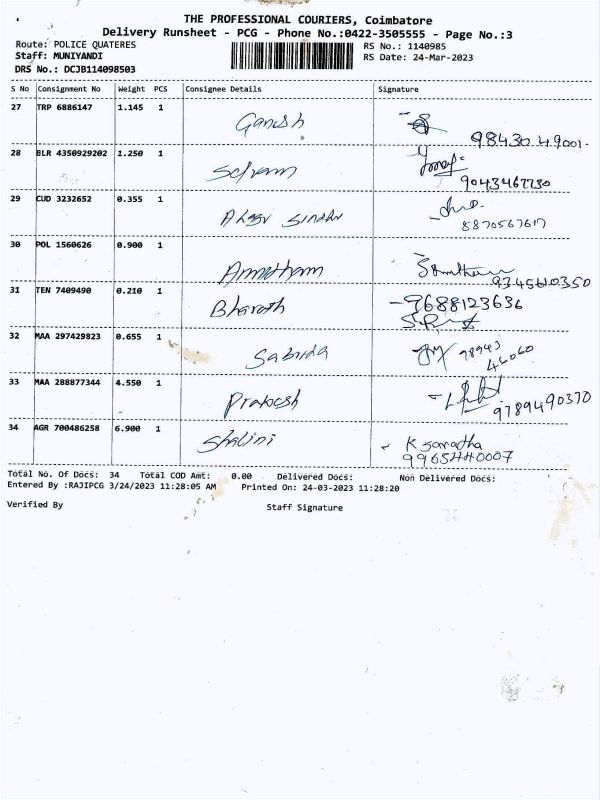 THE PROFESSIONAL COURIERS, Coimbatore
Delivery Runsheet - PCG - Phone No.:0422-3505555 - Page No.:3
Route: POLICE QUATERES RS No.: 1140985
Staff: MUNIYANDI RS Date: 24-Mar-2023
DRS No.: DCJB114098503
S No Consignment No Weight PCS Consignee Details Signature
27 TRP 6886147 1.145 1 Ganish
9843049001-
28 BLR 4350929202 1.250 1
9043467730
29 CUD 3232652 0.355 1
8870567617
30 POL 1560626 0.900 1
9345610350
31 TEN 7409490 0.210 1 Bharath -9688123636
32 MAA 297429823 0.655 1 Sabrida 98943
46060
33 MAA 288877344 4.550 1 Prakash
9789490370
34 AGR 700486258 6.900 1 Shalini K Saratha
9965440007
Total No. Of Docs: 34 Total COD Amt: 0.00 Delivered Docs: Non Delivered Docs:
Entered By :RAJIPCG 3/24/2023 11:28:05 AM Printed On: 24-03-2023 11:28:20
Verified By Staff Signature